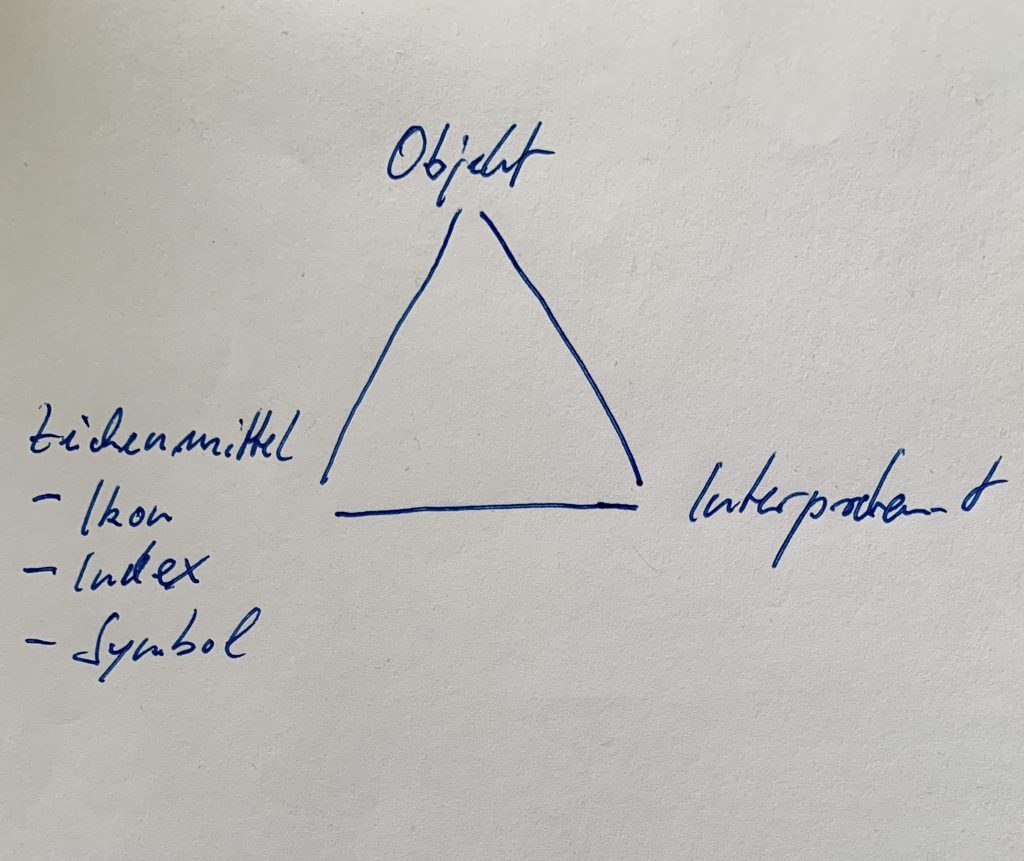 Objekt
Zeichenmittel
- Ikon
- Index
- Symbol
Interpretant